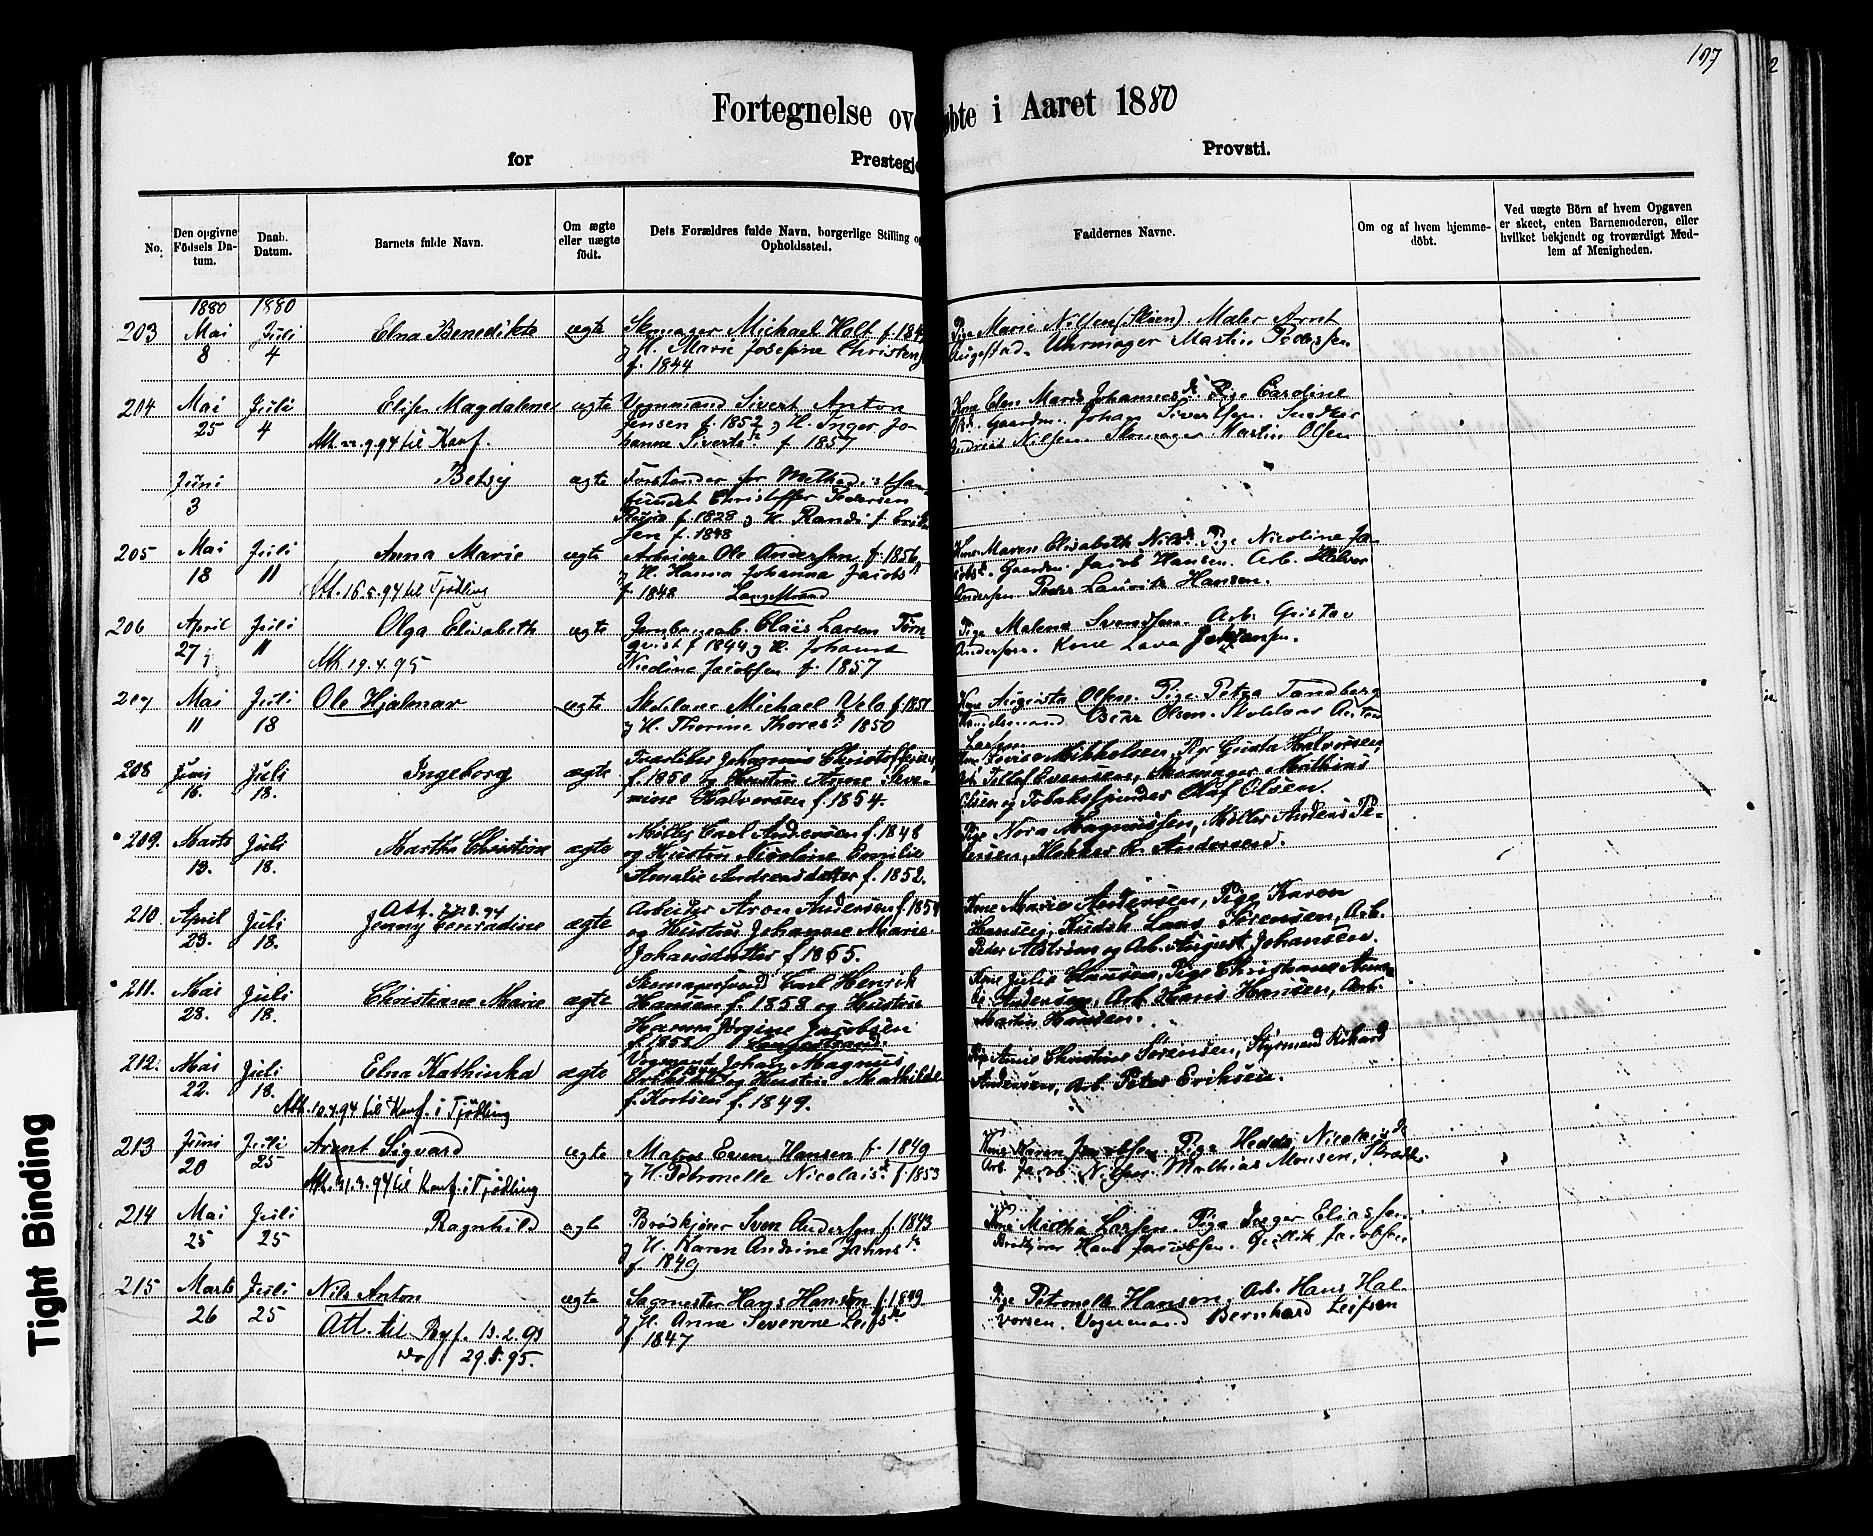 197
Fortegnelse ov
øbte i Aaret 1880
for
Prestegj
Provsti.
No.
Den opgivne Fødsels Da-
tum.
Daab.
Datum.
Barnets fulde Navn.
Om ægte
eller uægte
født.
Dets Forældres fulde Navn, borgerlige Stilling og
Opholdssted.
Faddernes Navne.
Om og af hvem hjemme-
døbt.
Ved uægte Børn af hvem Opgaven
er skeet, enten Barnemoderen, eller
hvilket bekjendt og troværdigt Med-
lem af Menigheden.
1880 1880
203 Mai 8 Juli 4 Elna Benedikte ægte
Skomager Michael Holt f. 184
og H. Marie Josefine Christens
f. 1844
Pige Marie Nilsen (Skien). Maler Arnt
Augestad. Uhrmager Martin Pedersen
204 Mai 25 Juli 4 Elise Magdalene ægte
Att. 22.9.94 til Konf.
Vognmand Sivert Anton
Jensen f. 1852 og H. Inger Jo-
hanne Siverts f. 1857
Kone Elen Marie Johannesd. Pige Cardine
Gaardm. Johan Sivertsen. Snedker
Andreas Nilsen. Skomager Martin Olsen
Juni 3 Betsy ægte
Forstander for Methodistsam-
fundet Christoffer Pedersen
f. 1828 og H. Randi f. Erik-
sen f. 1848
205 Mai 18 Juli 11 Anna Marie ægte
Att. 16.5.94 til Tjødling
Arbeider Ole Andersen f. 1856
og H. Hanna Johanna Jacobs
f. 1848 Langestrand
Kone Maren Elisabeth Nilsd. Pige Nicoline Ja-
cobsd. Gaardm. Jacob Hansen. Arb. Halvor
Andersen Peder Lauritz Hansen.
206 April 27 Juli 11 Olga Elisabeth ægte
Att. 19.4.95
Jernbanearb. Claus Larsen Törn-
qvist f 1844 og H. Johanne
Nicoline Jacobsen f. 1857
Pige Malena Svendsen Arb. Gustav
Andersen. Kone Lava Johansen.
207 Mai 11 Juli 18 Ole Hjalmar ægte
Michael Velo f. 1851
og H. Thorine Thoresd. 1850
Kone Augusta Olsen. Pige Petra Tandberg
Olsen. Anton
Larsen
208 Juni 16. Juli 18. Ingeborg ægte
Johannes Christoffersen
f. 1850 og Hustru Anne Seve-
rine Halvorsen f. 1854.
Kone Lovise Mikkelsen, Pige Gusta Halvorsen,
Arb. Tellef Evensen, Skomager Mathias
Olsen og Tobakspinder Oluf Olsen.
209. Marts 19. Juli 18. Martha Christine ægte
Møller Carl Andersen f. 1848
og Hustru Nicoline Emilie
Amalie Andreasdatter f. 1852.
Pige Nora Magnussen, Møller Anders Pe-
dersen, Klokker Kr. Andersen.
210 April 23. Juli 18. Jenny Conradine ægte
Arbeider Aron Andersen f. 1854
og Hustru Johanne Marie
Johansdatter f. 1855.
Kone Marie Andersen, Pige Karen
Hansen, Kudsk Lars Sørensen, Arb.
Peder Alström og Arb. August Johansen.
211. Mai 28. Juli 18. Christiane Marie ægte
Skomagersvend Carl Henrik
Hansen f. 1858 og Hustru
Jörgine Jacobsen
f. 1858 Langestrand.
Kone Julie Clausen, Pige Christiane Ama-
Andersen, Arb. Hans Hansen, Arb.
Martin Hansen.
212. Mai 22. Juli 18. Elna Kathinka ægte
Att. 10.4.94 til Konf. i Tjødling
Vognmand Johan Magnus
Eriksen og Hustru Mathilde
f. 1849.
Pige Anne Christine Sørensen, Styrmand Rikard
Andersen, Arb. Peter Eriksen.
213 Juni 20 Juli 25 Arent Sigvard ægte
Att. 31.3.94 til Konf. i Tjødling
Matros Even Hansen f. 1849
og H. Petronelle Nicolaisd. f 1853
Kone Karen Jacobsen Pige Hedda Nicolaisd.
Arb. Jacob Nilsen Mathias Monsen,
214 Mai 25 Juli 25 Ragnhild ægte
Brødkjører Sven Andersen f. 1843
og H. Karen Andrine Jahnsd.
f 1849
Kone Mathea Larsen Pige Inger Eliassen
Brødkjører Hans Jacobsen. Gullik Jacobsen
215 Marts 26 Juli 25 Nils Anton ægte
Att. til
29.8.95.
Sagmester Hans Hansen f. 1849
og H. Anne Severine Leifsd.
f 1847
Pige Petronelle Hansen, Arb. Hans Hal-
vorsen. Vognmand Bernhard Leifsen
Tight Binding